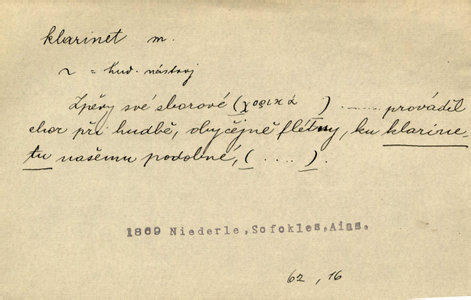 klarinet m.
~ = hud. nástroj
Zpěvy své sborové (χορικά ) ...... prováděl
chor při hudbě, obyčejně flétny, ku klarine
tu našemu podobné, (....).
1869 Niederle,Sofokles,Aias.
62, 16